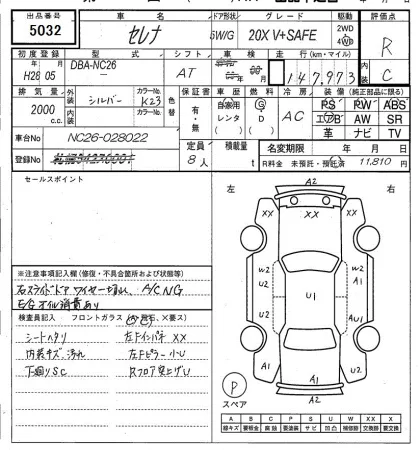 出品番号 車名 ドア形状 グレード 駆動 評価点
5032 セレナ 5W/G 20X V+SAFE 2WD 4WD R
初度登録 型式 シフト 車検 走行(km・マイル)
H28 05 DBA-NC26 AT 147,973 C
年 月
排気量 外装 カラーNo. 色替 保証書 車歴 燃料 冷房 装備(純正部品に限る)
2000 c.c. シルバー K23 有・無 自家用 G AC PS PW ABS
内装 カラーNo. レンタ D エアB AW SR
革 ナビ TV
車台No NC26-028022 定員 積載量 名変期限 年 月 日
登録No 8人 t R料金 未預託・預託済 11,810 円
セールスポイント
左 右
A2
XX XX XX
W2 W2
A2 U1 U2
A2 AU1
A1 U2 A1 U2 A1
A2
P
スペア
※注意事項記入欄(修復・不具合箇所および状態等)
右スライドドア ワイヤー切れ、A/C NG
E/G オイル消費あり
検査員記入 フロントガラス
シートヘタリ 左Fインパネ XX
内装キズ、汚れ 左Fピラー 小U
下廻りSC Rフロア突上げU
A B C P S U W X XX
線キズ 要板金 腐蝕 要塗装 サビ 凹凸 補修跡 要交換 交換跡